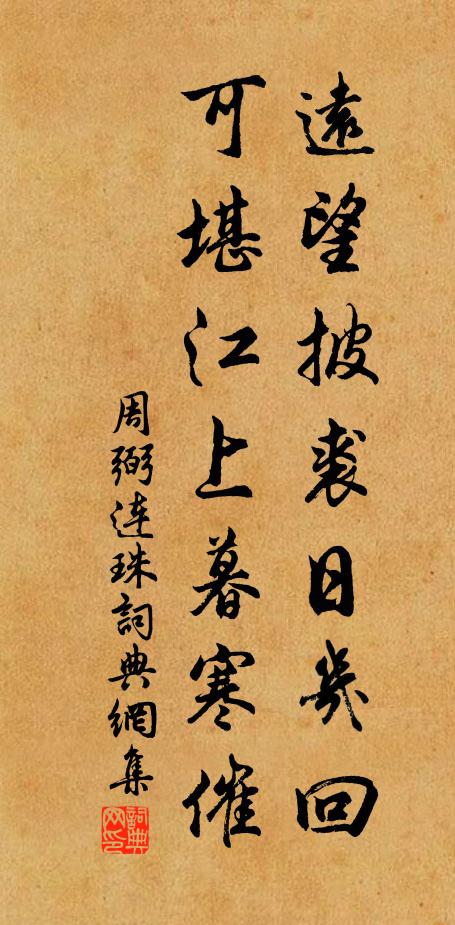 遠望披裘日幾回
可堪江上暮寒催
周弼连珠詞典網集
詞典网印